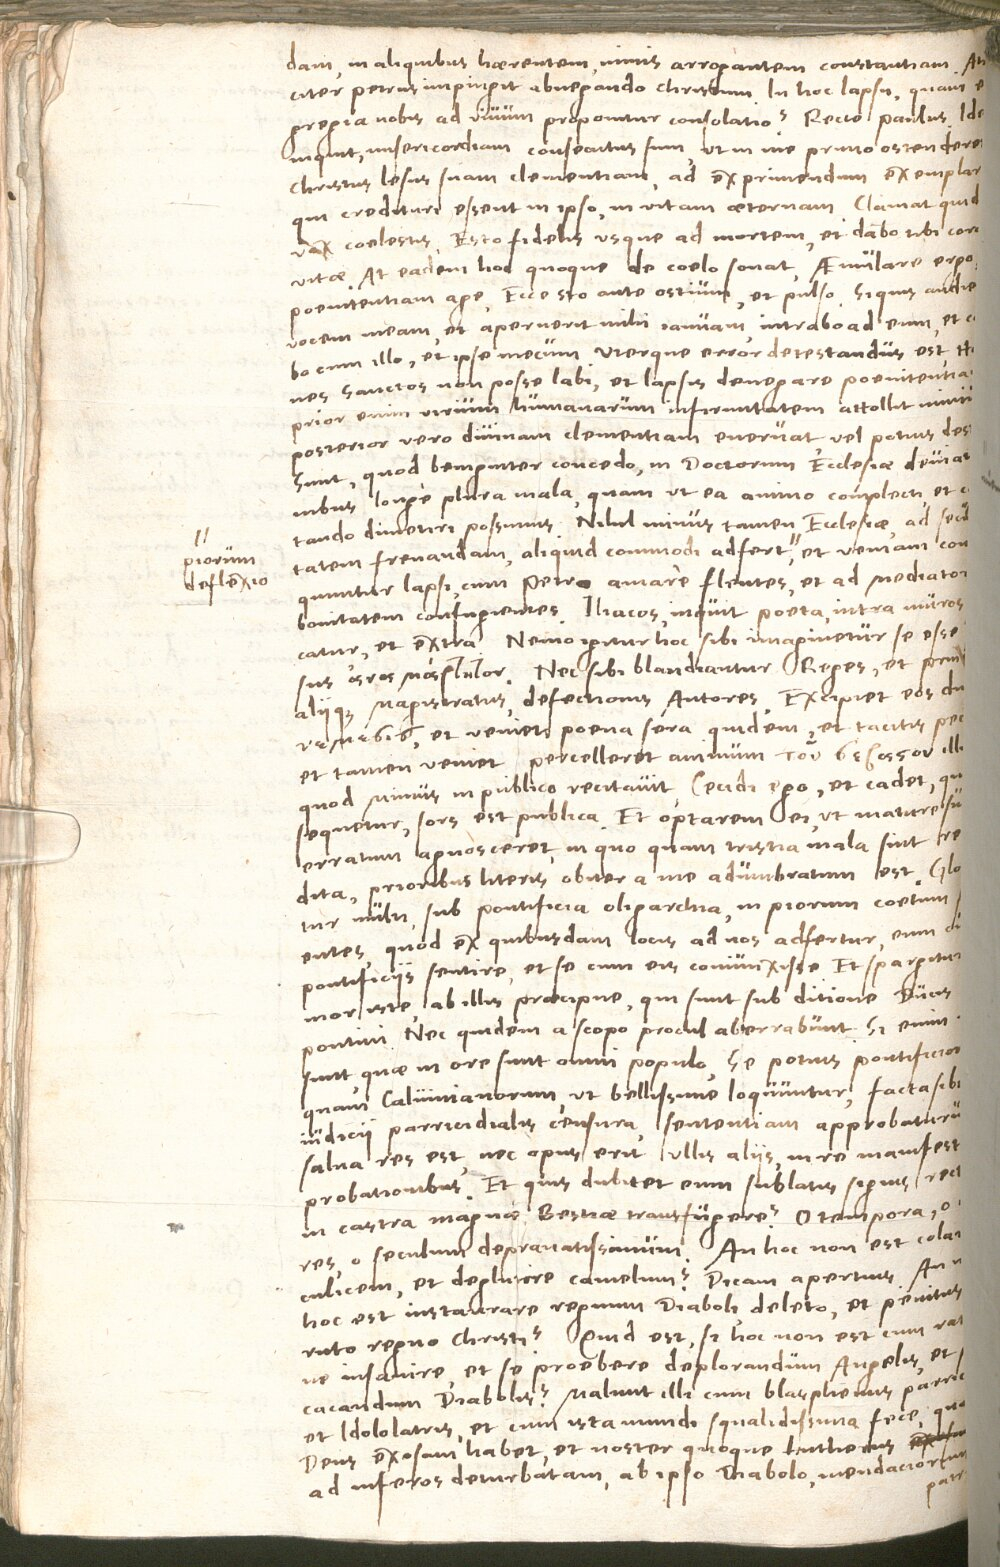 dam, in aliquibus hærentem, nimis arrogantem constantiam. An
citer petrus impingit abnegando Christum. In hoc lapsu, quam e
gregia nobis ad vivum proponitur consolatio? Recte paulus. Ide
inquit, misericordiam consecutus sum, ut in me primo ostenderet
Christus Iesus suam clementiam, ad exprimendum exemplar
qui credituri essent in ipso, in vitam æternam. Clamat quid
vox coelestis. Esto fidelis usque ad mortem, et dabo tibi coro
vitæ. At eadem hoc quoque de coelo sonat, Æmulare ergo,
poenitentiam age, Ecce sto ante ostium, et pulso. Siquis audie
vocem meam, et aperuerit mihi ianuam, intrabo ad eum, et c
bo cum illo, et ipse mecum. Uterque error detestandus est, H
nes sanctos non posse labi, et lapsis denegare poenitentia
prior enim virium humanarum infirmitatem attollit nimi
posterior vero divinam clementiam enervat vel potius des
Sunt, quod benigniter concedo, in Doctorum Ecclesiæ deviat
nibus longe plura mala, quam ut ea animo complecti, et c
tando dimetiri possimus. Nihil minus tamen Ecclesiæ, ad secu
tatem frenandam, aliquid commodi adfert," et veniam con
quuntur lapsi, cum Petro amare flentes, et ad Mediator
"
piorum
deflexio
bonitatem confugientes. Iliacos, inquit poeta, intra muros
catur, et extra. Nemo igitur hoc sibi imaginetur se esse
sus Nec sibi blandiantur Reges, et prin
aliique Magistratus, defectionis Autores. Excipiet eos du
νέμεσις, et veniet poena sera quidem, et tacitis ped
et tamen veniet. percelleret animum τοῦ illi
quod Mimus in publico recitavit. Cecidi ego, et cadet, qu
sequetur, sors est publica. Et optarem ei, ut mature su
erratum agnosceret, in quo quam tristia mala sint re
dita, prioribus literis obiter a me adumbratum est. Glo
tur multi, sub pontificia oligarchia, in piorum coetum
entes, quod ex quibusdam locis ad nos adfertur, eum cu
pontificiis sentire, et se cum eis coniunxisse. Et spargitur
mor iste, ab illis præcipue, qui sunt sub ditione Ducis
pontini. Nec quidem a scopo procul aberrabunt. Si enim
sunt, quæ in ore sunt omni populo, Se potius pontificior
quam Calvinianorum, ut bellissime loquuntur, facta sibi
iudicii parricidialis censura, sententiam approbaturu
salva res est, nec opus erit ullis aliis, in re manifest
probationibus. Et quis dubitet eum sublatis signis rect
in castra magnæ Bestiæ transfugere? O tempora, o
res, o seculum depravatissimum. An hoc non est cola
culicem, et deglutire camelum? Dicam apertius. An n
hoc est instaurare regnum Diaboli deleto, et penitus
ruto regno Christi? Quid est, si hoc non est cum rat
ne insanire, et se præbere deplorandum Angelis, et
cacandum Diabolis? Malunt illi cum blasphemis parric
et Idololatris, et cum ista mundi squalidissima fece, qua
Deus exosam habet, et noster quoque Lutherus
ad inferos deturbatam, ab ipso Diabolo, mendaciorum
patr